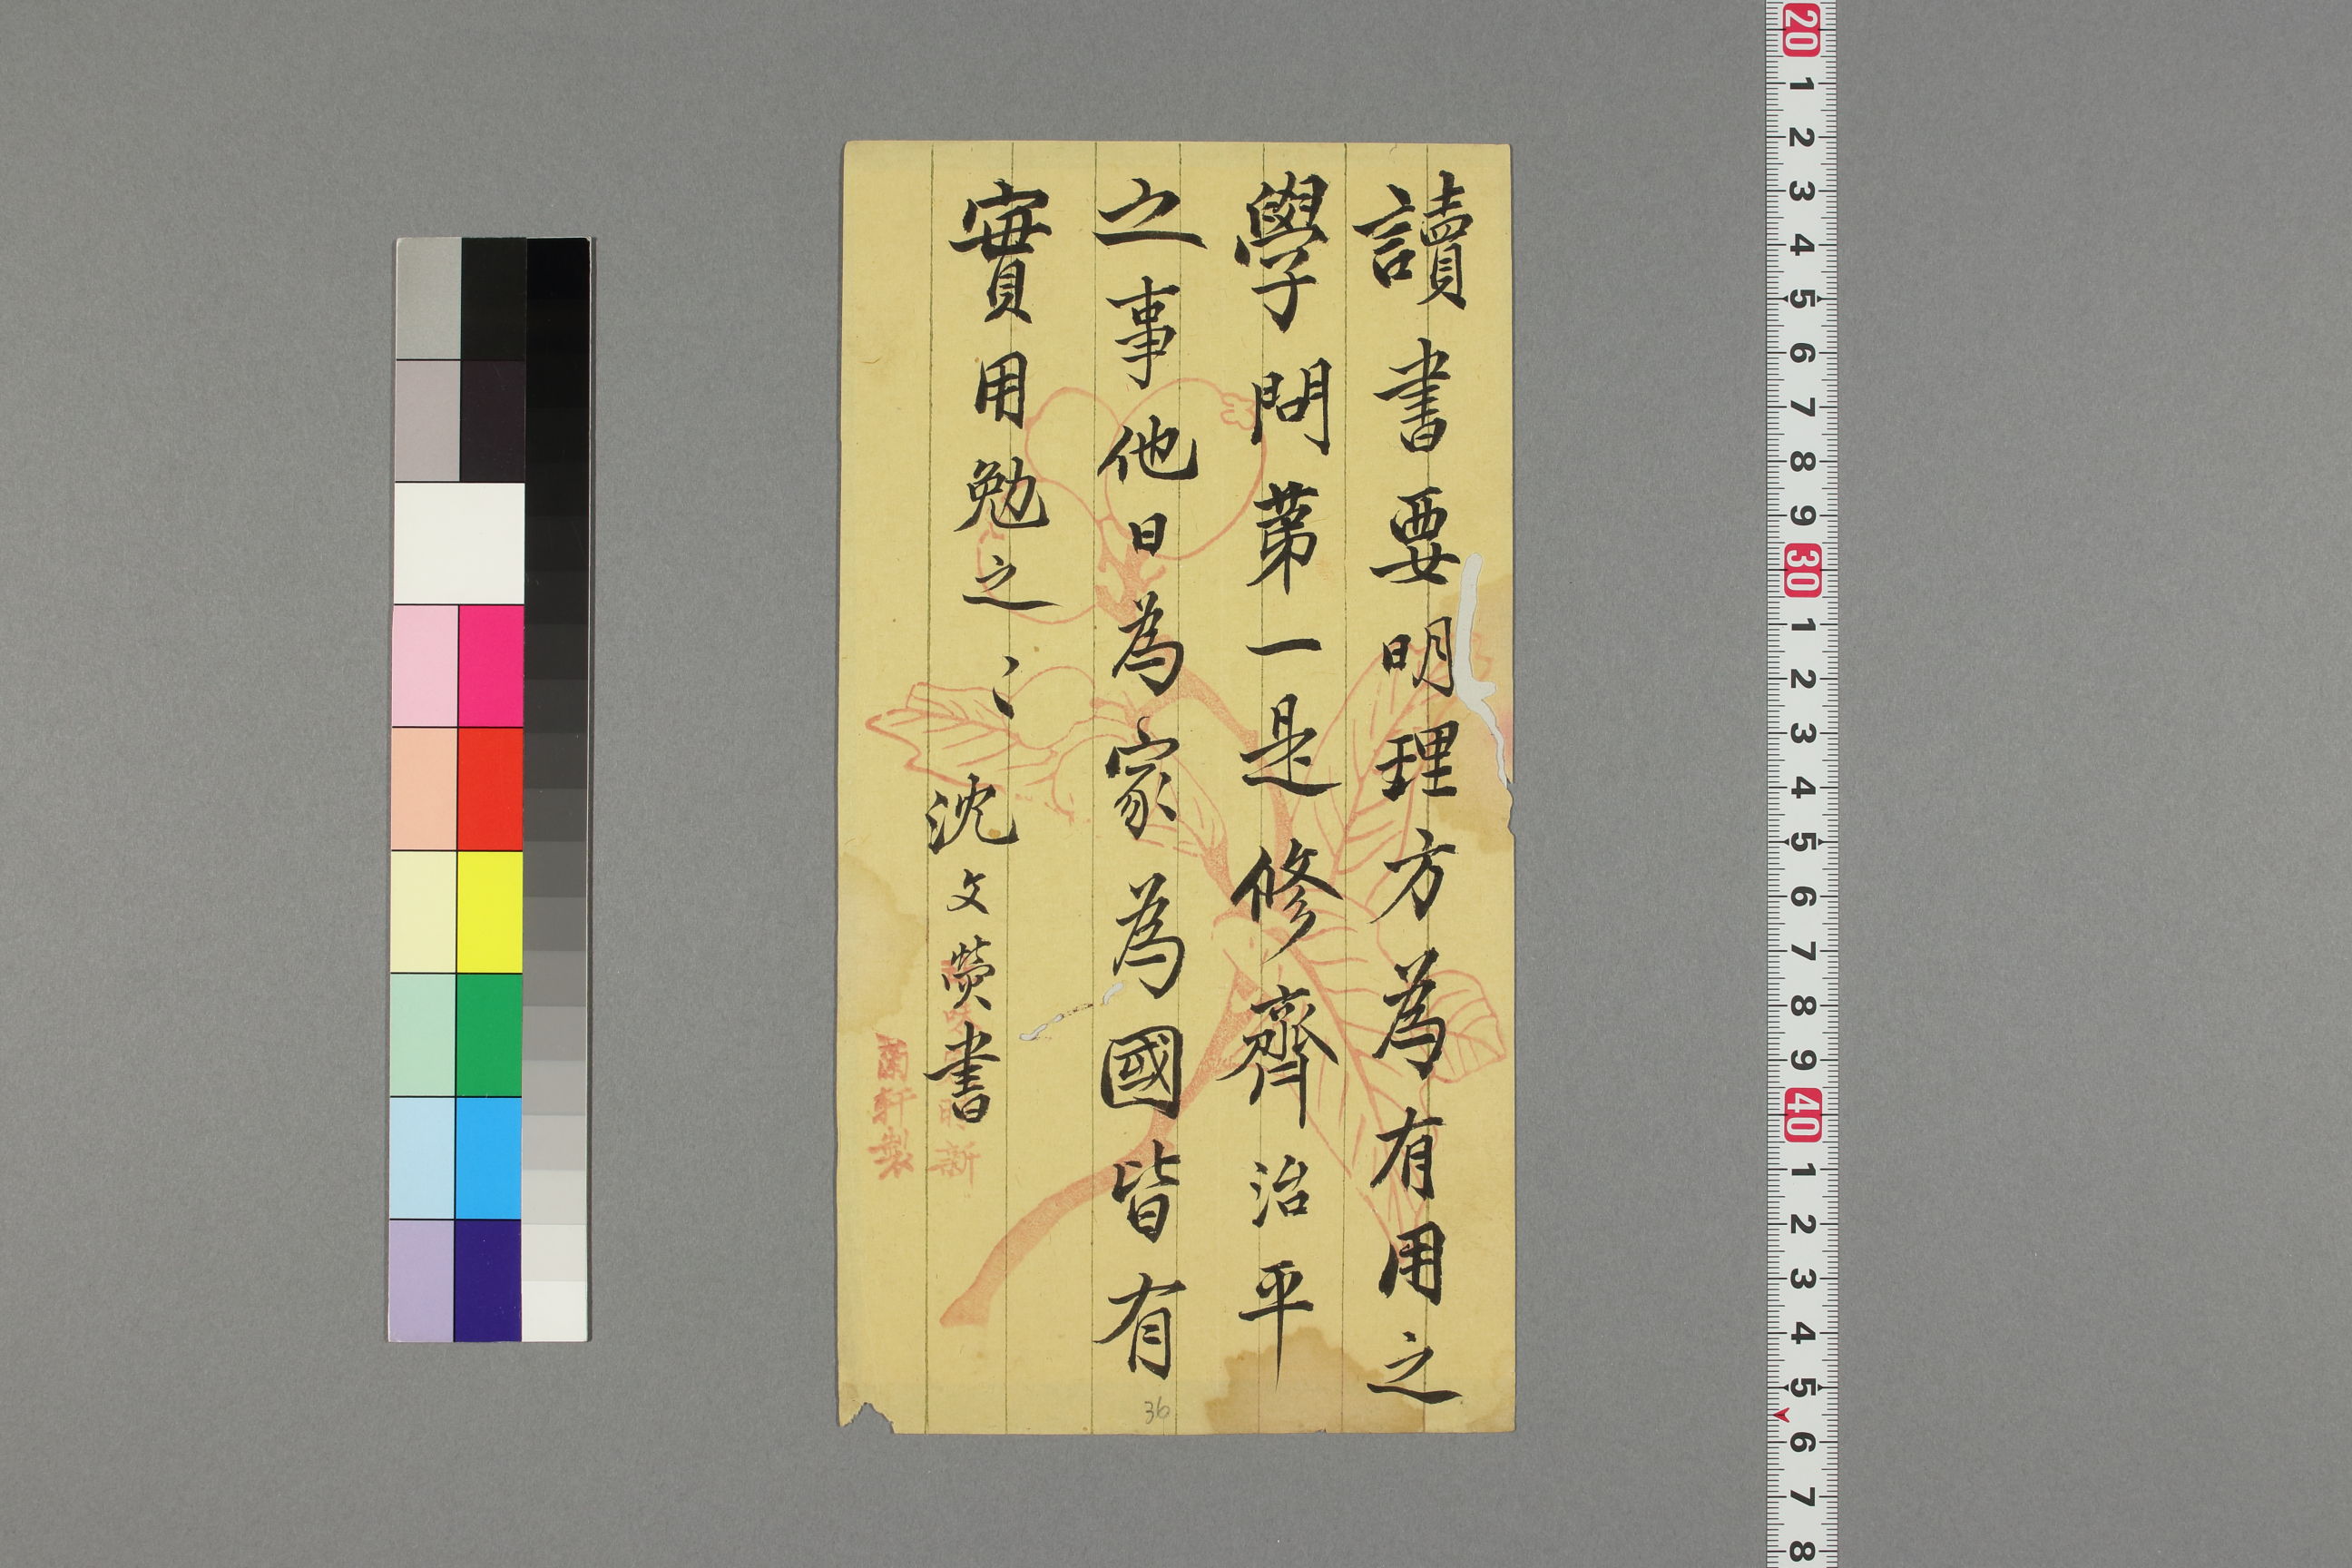 讀書要明理方為有用之
學問第一是修齊治平
之事他日為家為國皆有
實用勉之〻
沈文熒書
新
蘭軒製
36
20 1 2 3 4 5 6 7 8 9 30 1 2 3 4 5 6 7 8 9 40 1 2 3 4 5 6 7 8